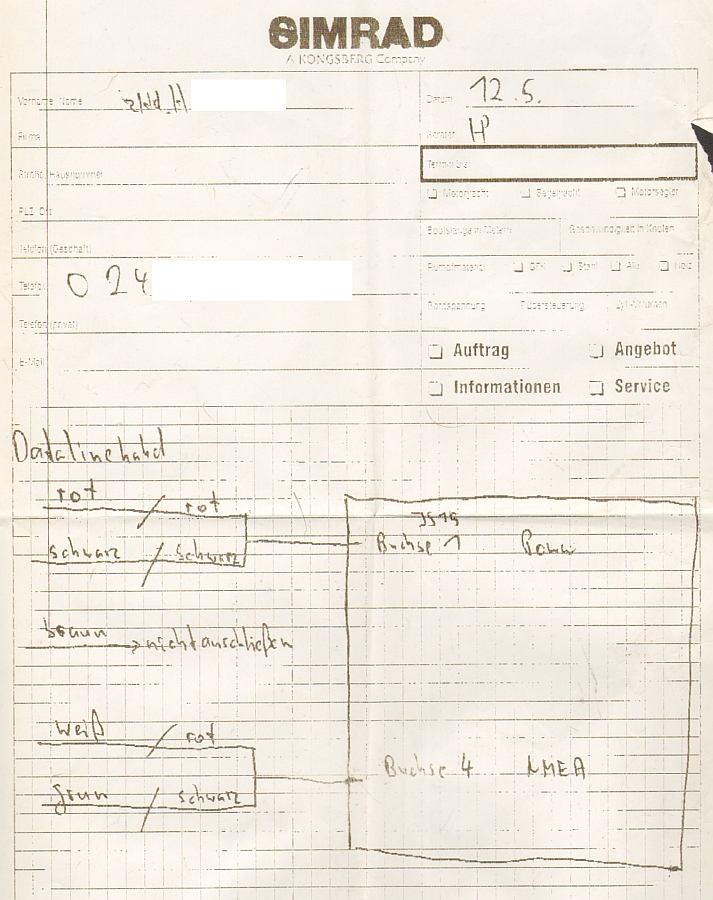 SIMRAD
A KONGSBERG Company
Vorname Name
Datum 12.5.
Firma
Straße, Hausnummer
Termin bis
PLZ Ort
Motoryacht Segelyacht Motorsegler
Telefon (Geschäft)
Bootslänge in Metern Geschwindigkeit in Knoten
Telefax 024
Rumpfmaterial GFK Stahl Alu Holz
Telefon (privat)
Bordspannung
E-Mail
Auftrag Angebot
Informationen Service
rot / rot
JS19
schwarz / schwarz
Buchse 1
braun → nicht anschließen
weiß / rot
Buchse 4 NMEA
grün / schwarz